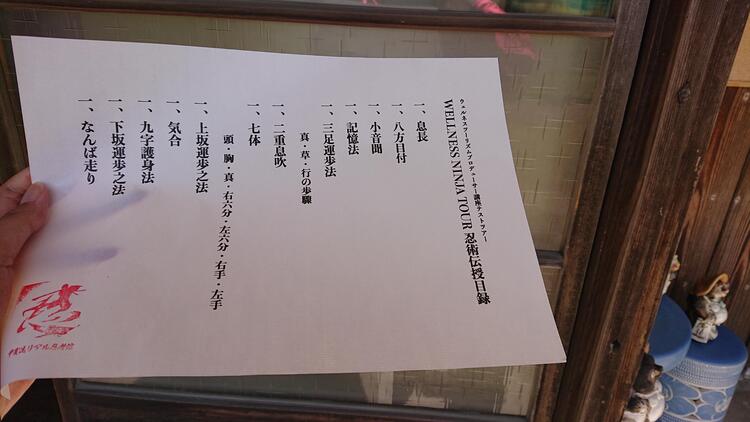 ウェルネスツーリズムプロデューサー講座テストツアー
WELLNESS NINJA TOUR 忍術伝授目録
一、息長
一、八方目付
一、小音聞
一、記憶法
一、三足運歩法
真・草・行の歩驟
一、二重息吹
一、七体
頭・胸・真・右六分・左六分・右手・左手
一、上坂運歩之法
一、気合
一、九字護身法
一、下坂運歩之法
一、なんば走り
忍
甲賀流リアル忍術館